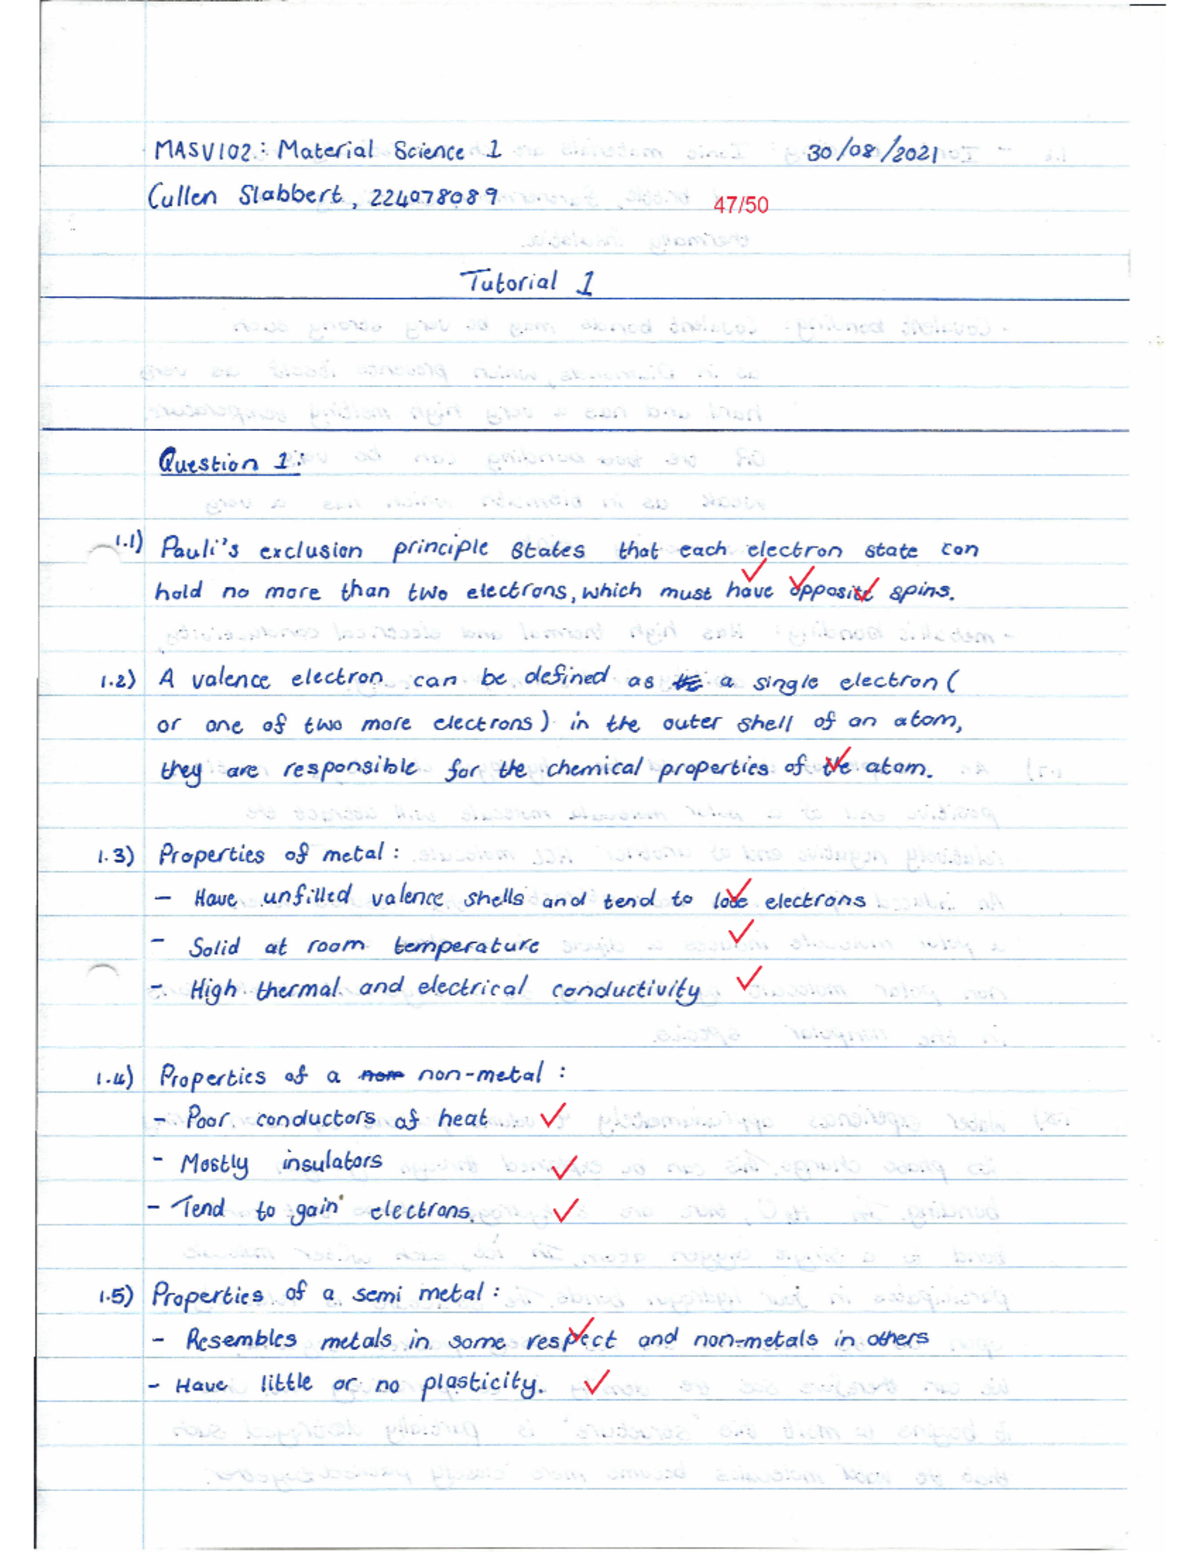 MASV102: Material Science 1 30/08/2021
Cullen Slabbert, 224078089 47/50
Tutorial 1
Question 1:
1.1) Pauli's exclusion principle states that each electron state can
hold no more than two electrons, which must have opposite spins.
1.2) A valence electron can be defined as a single electron (
or one of two more electrons) in the outer shell of an atom,
they are responsible for the chemical properties of the atom.
1.3) Properties of metal:
- Have unfilled valence shells and tend to lose electrons
- Solid at room temperature
- High thermal and electrical conductivity
1.4) Properties of a non-metal:
- Poor conductors of heat
- Mostly insulators
- Tend to gain electrons.
1.5) Properties of a semi metal:
- Resembles metals in some respect and non-metals in others
- Have little or no plasticity.